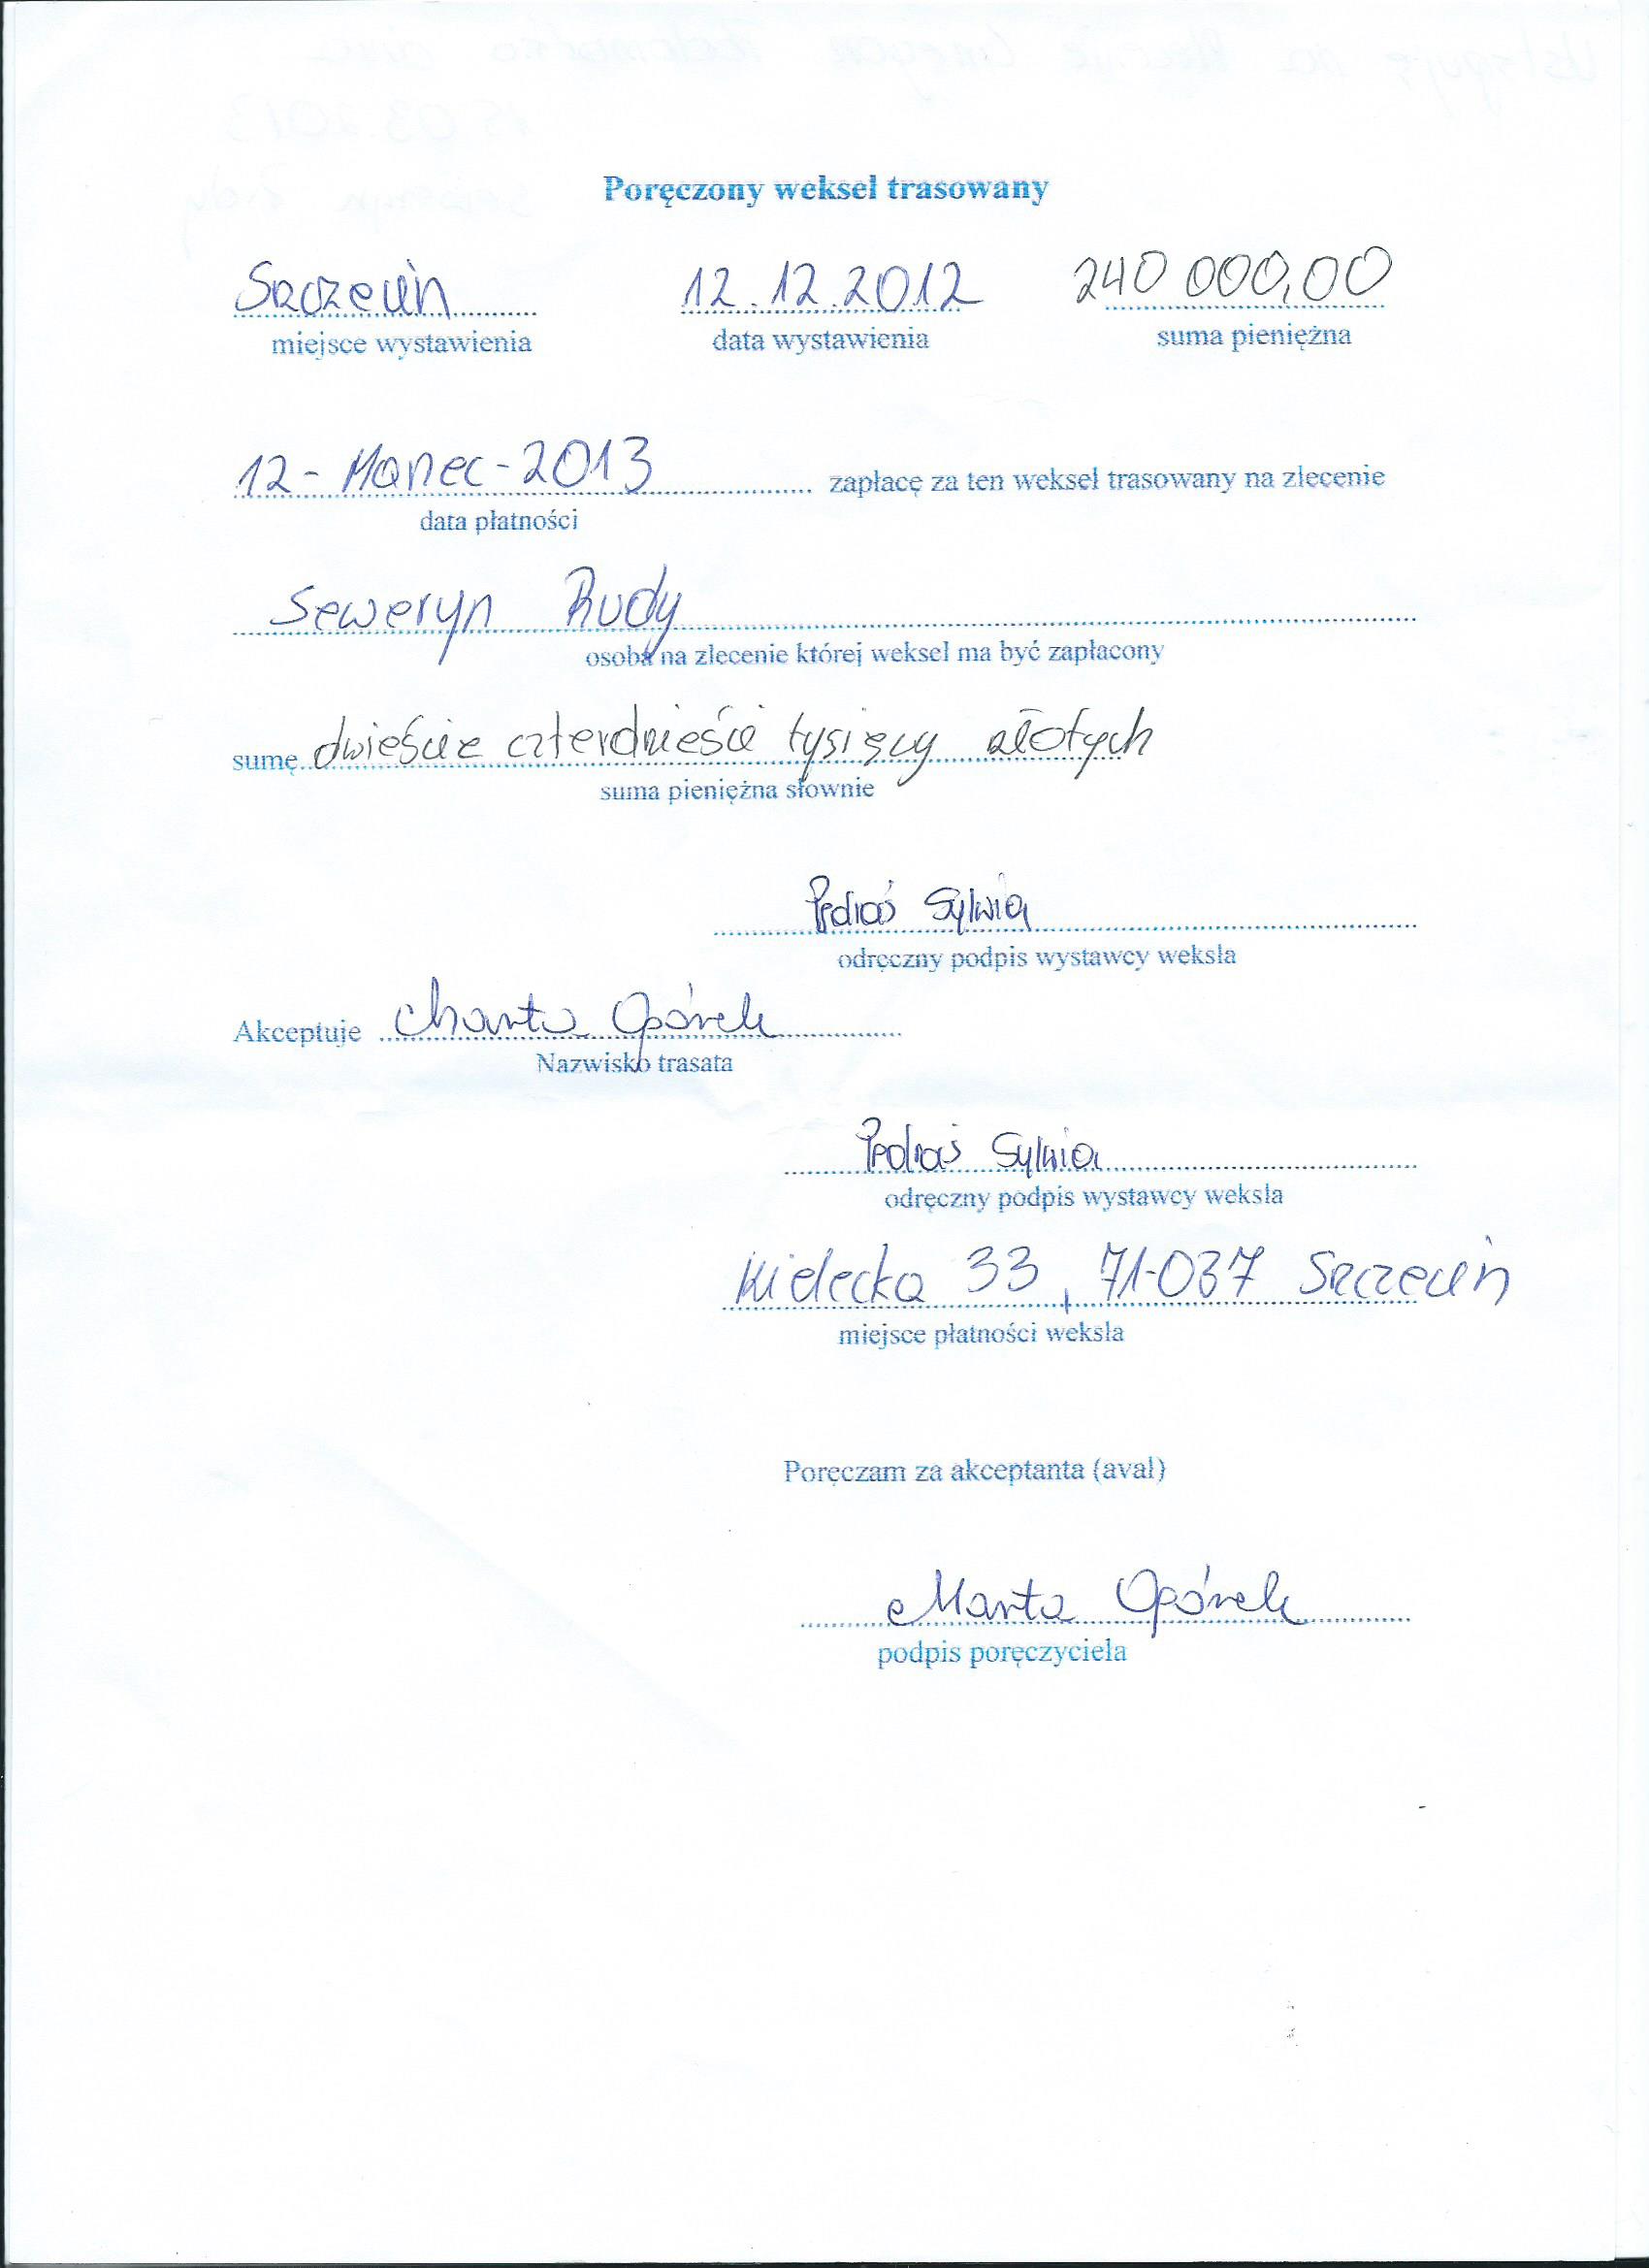 Poręczony weksel trasowany
Szczecin 12.12.2012 240 000,00
miejsce wystawienia data wystawienia suma pieniężna
12-Marzec-2013 zapłacę za ten weksel trasowany na zlecenie
data płatności
Seweryn Rudy
osoba na zlecenie której weksel ma być zapłacony
sumę dwieście czterdzieści tysięcy złotych
suma pieniężna słownie
Sylwia
odręczny podpis wystawcy weksla
Akceptuje Marta Opórek
Nazwisko trasata
Sylwia
odręczny podpis wystawcy weksla
Kielecka 33, 71-037 Szczecin
miejsce płatności weksla
Poręczam za akceptanta (aval)
Marta Opórek
podpis poręczyciela